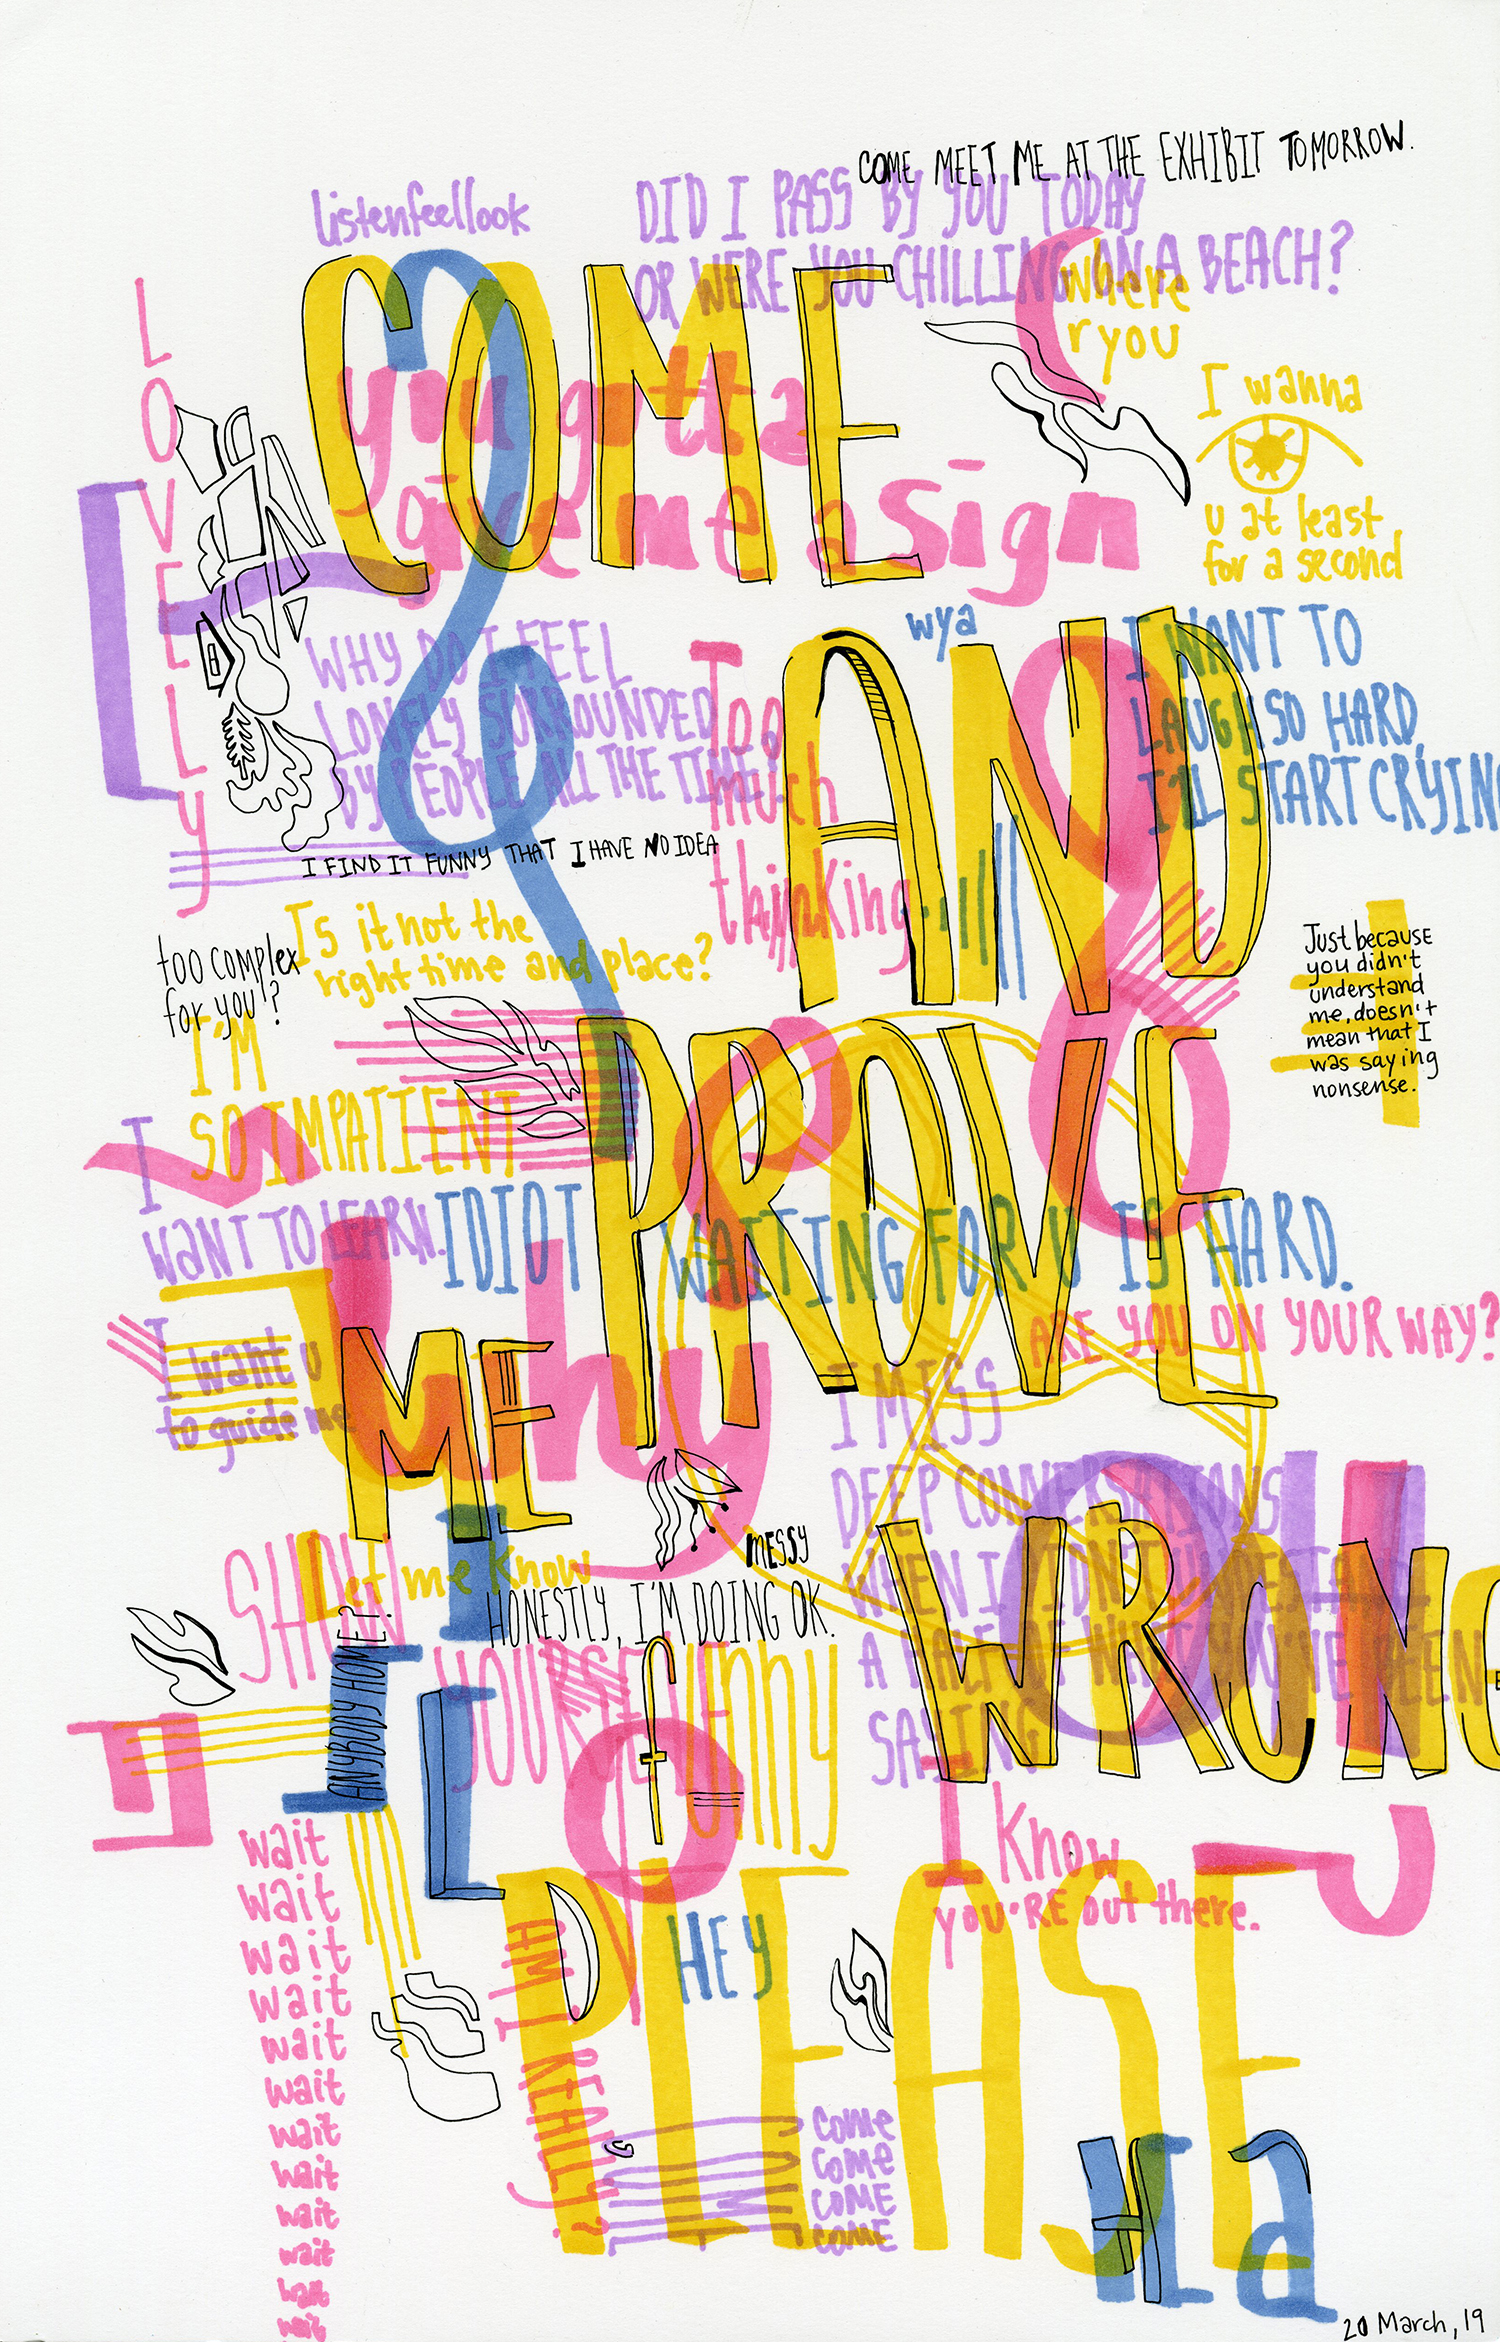 COME MEET ME AT THE EXHIBIT TOMORROW.
listenfeellook
DID I PASS BY YOU TODAY
OR WERE YOU CHILLING ON A BEACH?
where
r you
LOVELY
COME
I wanna
u at least
for a second
you gotta
give me a sign
wya
WHY DO I FEEL
LONELY SURROUNDED
BY PEOPLE ALL THE TIME?
Too
much
thinking
AND
I WANT TO
LAUGH SO HARD,
I'LL START CRYING
I FIND IT FUNNY THAT I HAVE NO IDEA
Is it not the
right time and place?
too complex
for you?
Just because
you didn't
understand
me, doesn't
mean that I
was saying
nonsense.
I'M
SO IMPATIENT
PROVE
I
WANT TO LEARN.
IDIOT
WAITING FOR U IS HARD.
ARE YOU ON YOUR WAY?
I want u
to guide me
why
ME
I MISS
DEEP CONVERSATIONS
WHEN I DIDN'T UNDERSTAND
A HALF OF WHAT YOU'VE BEEN
SAYING
WRONG
OH
MESSY
Let me know
HONESTLY, I'M DOING OK.
SHOW
YOURSELF
ANYBODY HOME?
funny
I know
you're out there.
PLEASE
HEY
AM I REALLY?
wait
wait
wait
wait
wait
wait
wait
wait
wait
wait
wait
wait
COME
come
come
come
come
Ha
20 March, 19